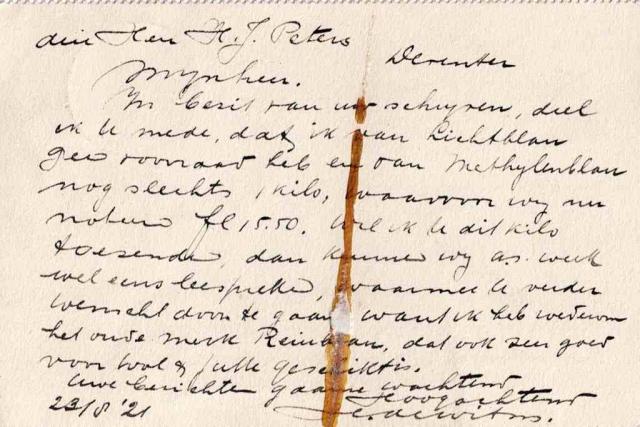 den Heer H. J. Peters
Deventer
Mynheer.
In bezit van uw schryven, deel
ik U mede, dat ik van Lichtblau
geen voorraad heb en van Methylenblau
nog slechts 1 kilo, waarvoor wy nu
noteeren fl 15.50. Wil ik U dit kilo
toezenden, dan kunnen wy a.s. week
wel eens bespreken, waarmee U verder
wenscht door te gaan want ik heb wederom
het oude merk Reinblau, dat ook zeer goed
voor wol & jutte geschikt is.
Uwe berichten gaarne wachtend
Hoogachtend
23/8 '21